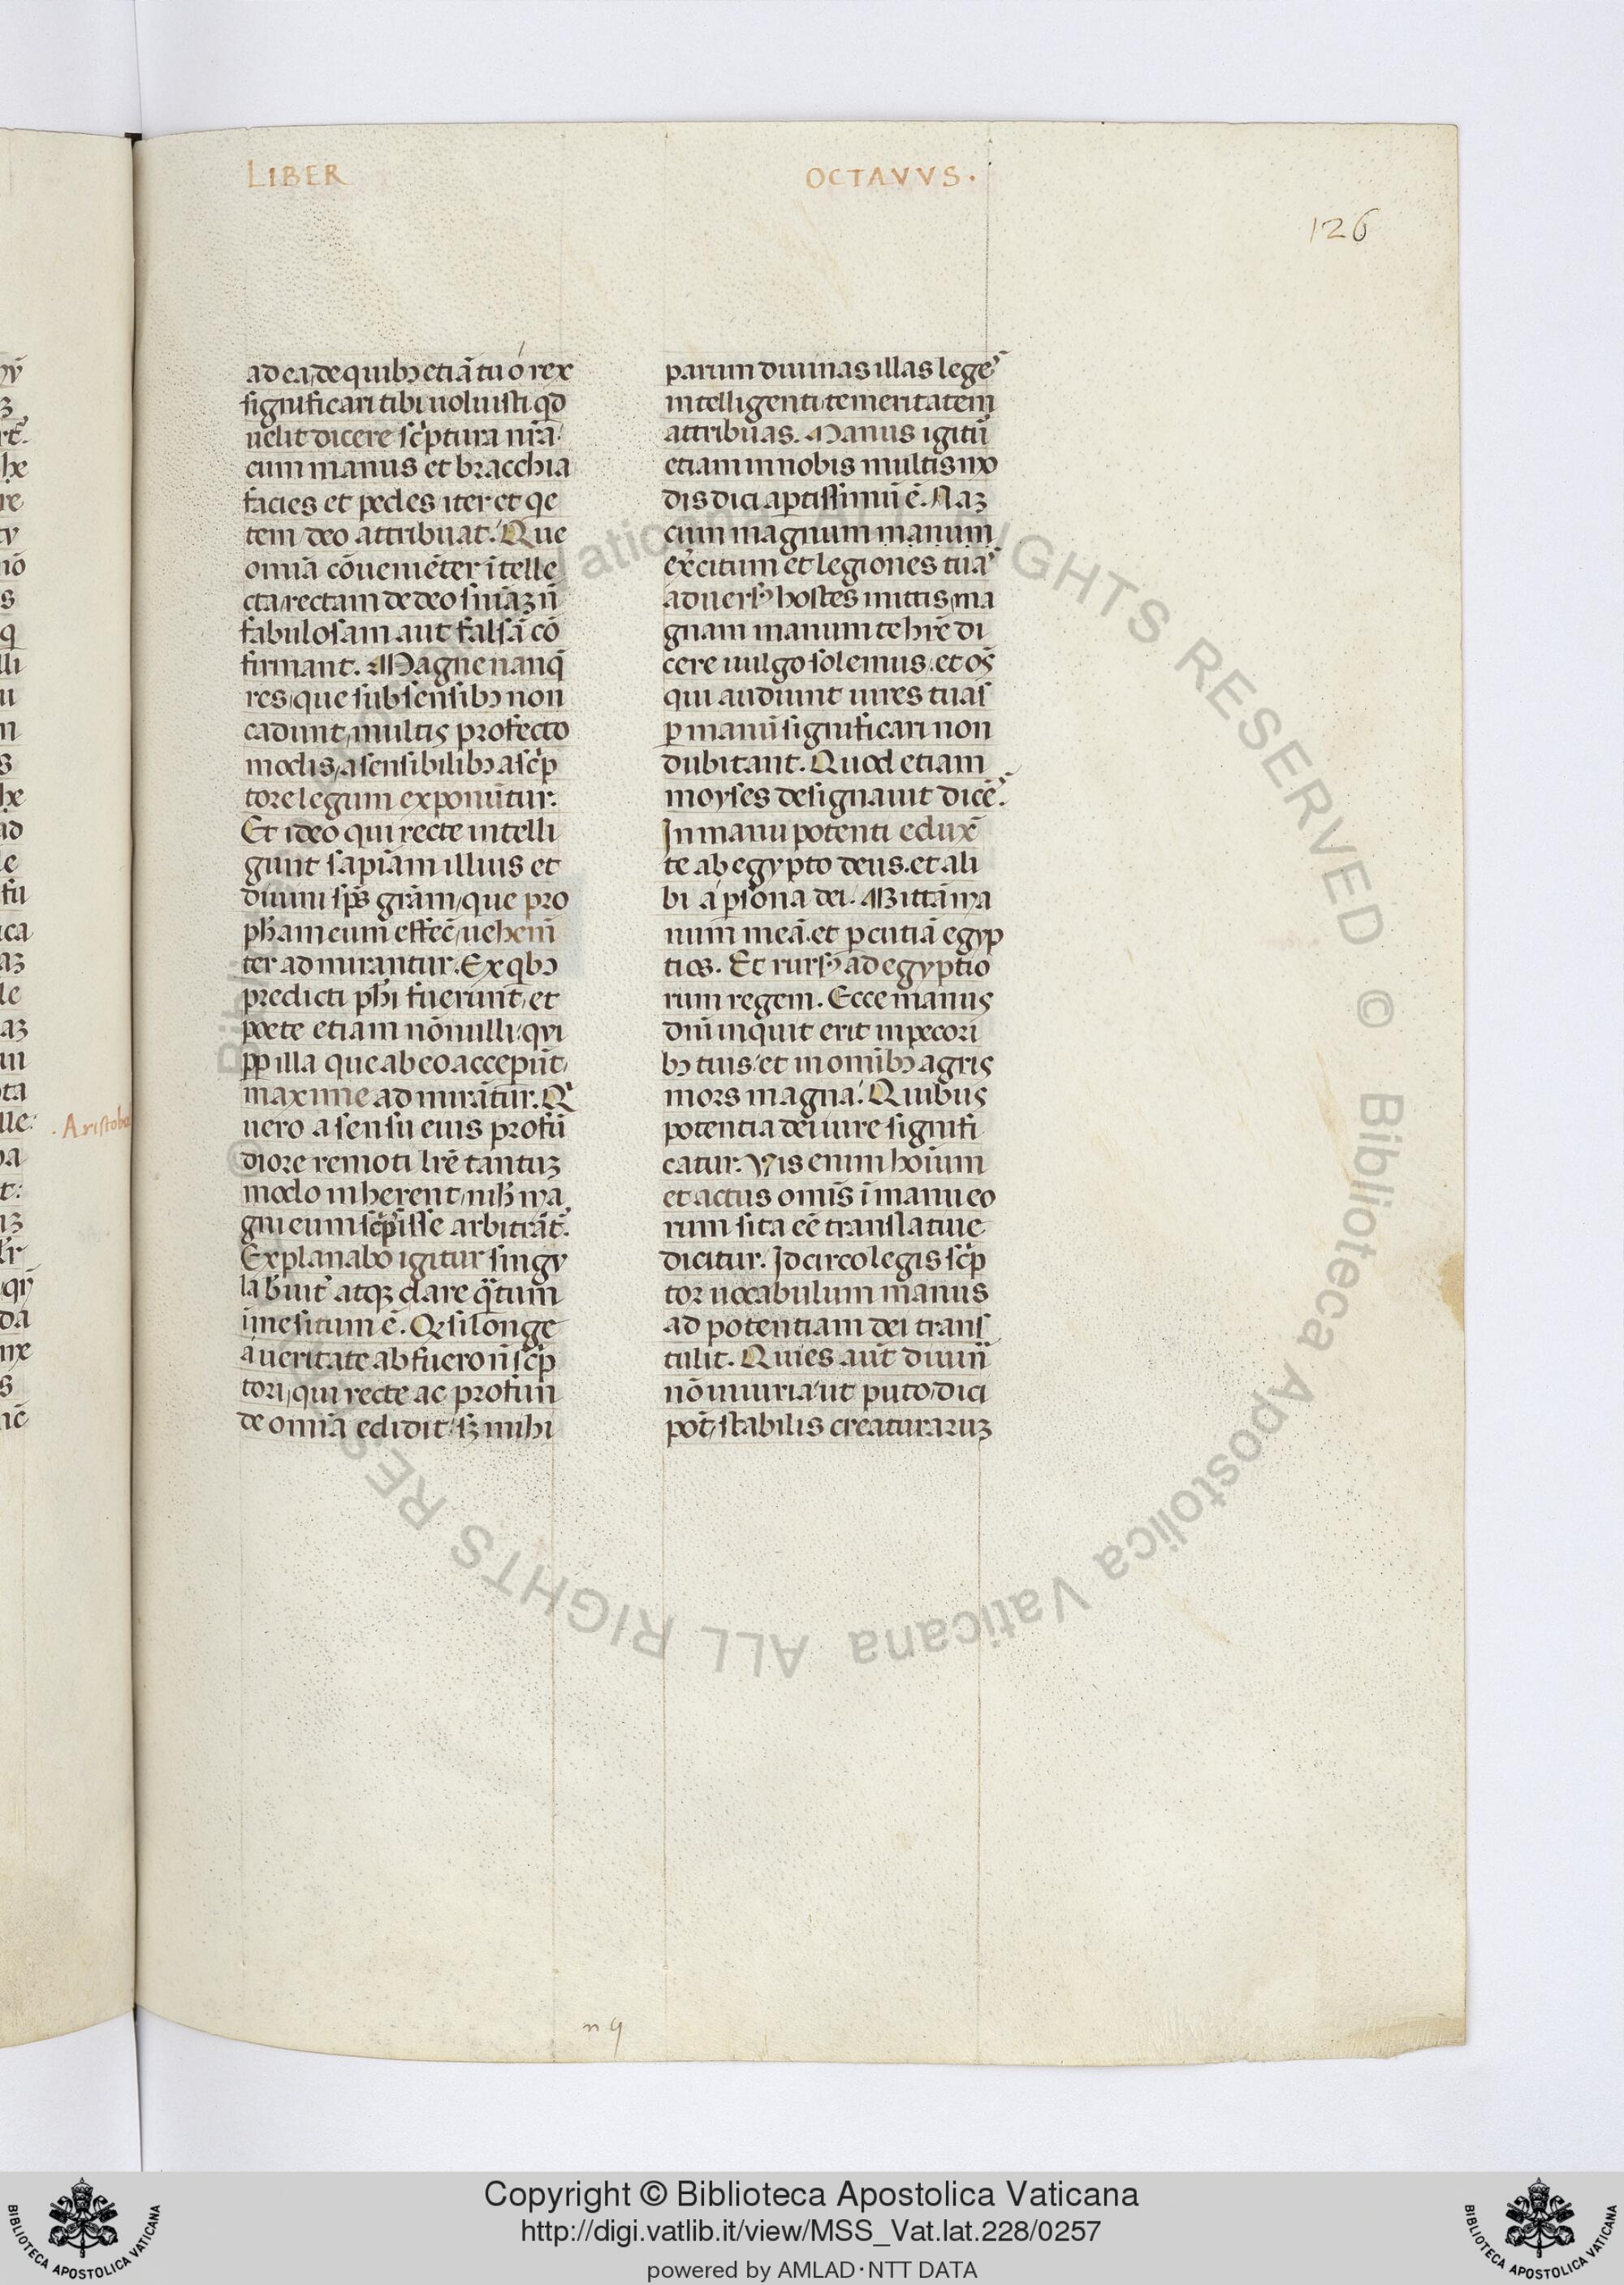 LIBER OCTAVVS.
126
ad ea, de quibꝫ etiā tu ó rex
significari tibi uoluisti. qd̄
uelit dicere sc̓ptura nr̄a.
cum manus et bracchia
facies et pedes iter et qe
tem deo attribuat. Que
om̄ia cōueniēter ītelle
cta, rectam de deo sn̄iaꝫ n̄
fabulosam aut falsā cō
firmant. Magne nanq̄
res, que sub sensibꝫ non
cadunt, multis profecto
modis, a sensibilibꝫ a sc̓p
tore legum exponūtur.
Et ideo qui recte intelli
gunt sapiām illius et
diuini sp̄s grām, que pro
ph̄am eum effēc̄, uehem̄
ter admirantur. Ex qbꝫ
predicti ph̄i fuerunt, et
poete etiam nōnulli, qui
pp̄ illa que ab eo accepūt,
maxime admirātur. Q̓
uero a sensu eius profū
diore remoti lr̄e tantuꝫ
modo inherent, nih̄ ma
gni eum sc̓psisse arbitrāt̓.
Explanabo igitur singu
la breuit̓ atqꝫ clare q̄tum
in me situm ē. Q si longe
a ueritate abfuero n̄ sc̓p
tori, qui recte ac profun
de om̄ia edidit, sꝫ mihi
parum diuinas illas lege˜
intelligenti, temeritatem
attribuas. Manus igitū
etiam in nobis multis mo
dis dici aptissimū ē. Naꝫ
cum magnum manum
exc̓itum et legiones tua˜
aduersꝰ hostes mittis, ma
gnam manum te hr̄e di
cere uulgo solemus. et os̄
qui audiunt uires tuas
ꝑ manū significari non
dubitant. Quod etiam
moyses designauit dicē˜.
In manu potenti edux̄
te ab egypto deus. et ali
bi a ꝑsona dei. Mittā ma
num meā. et ꝑcutiā egyp
tios. Et rursꝰ ad egyptio
rum regem. Ecce manus
dn̄i inquit erit in pecori
bꝫ tuis, et in om̄ibꝫ agris
mors magna. Quibus
potentia dei iure signifi
catur. Vis enim hoīum
et actus omīs ī manu eo
rum sita eē translatiue
dicitur. Idcirco legis sc̓p
tor uocabulum manus
ad potentiam dei trans
tulit. Quies aūt diuin̄
nō iniuria, ut puto, dici
pot̄, stabilis creaturaruꝫ
. Aristobol
n 9
Copyright © Biblioteca Apostolica Vaticana
http://digi.vatlib.it/view/MSS_Vat.lat.228/0257
powered by AMLAD·NTT DATA
BIBLIOTECA APOSTOLICA VATICANA
BIBLIOTECA APOSTOLICA VATICANA
© Biblioteca Apostolica Vaticana ALL RIGHTS RESERVED © Biblioteca Apostolica Vaticana ALL RIGHTS RES